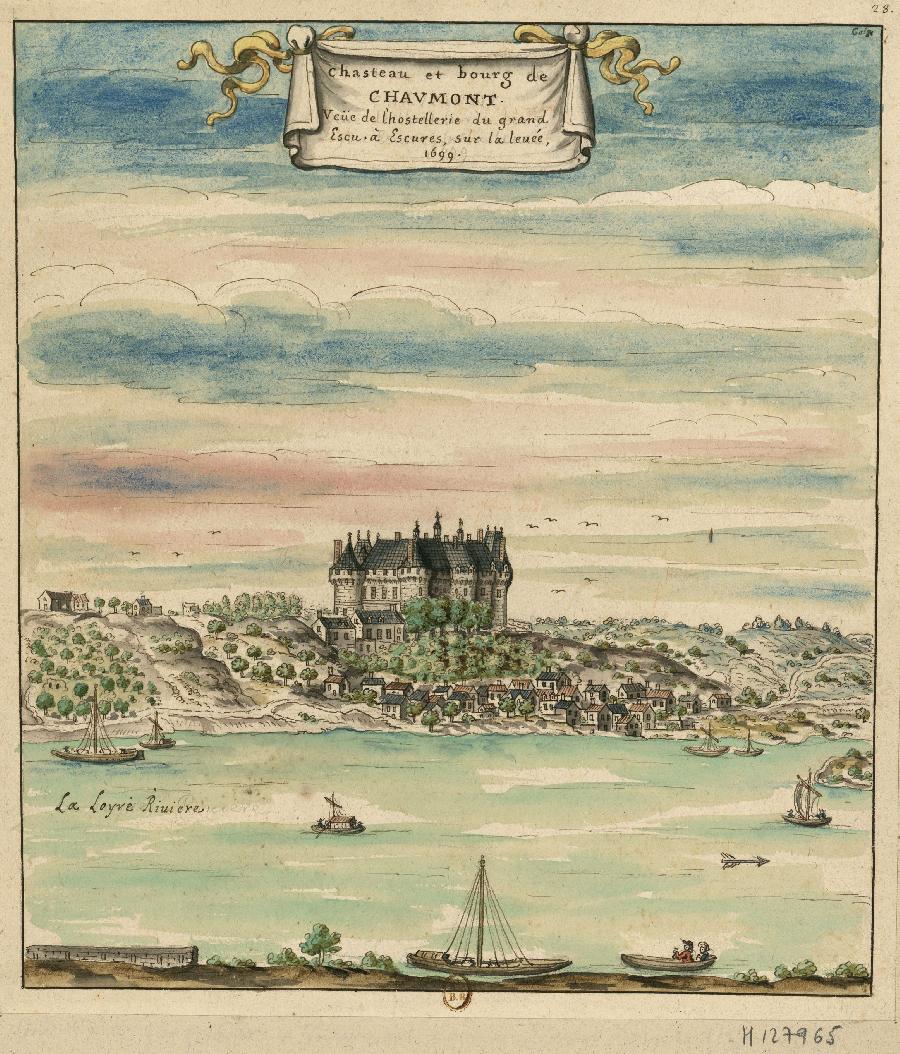 28.
Chasteau et bourg de
CHAVMONT.
Veüe de l'hostellerie du grand
Escu. à Escures, sur la leueé,
1699.
La Loyre Riuiere
B.R
H 127965